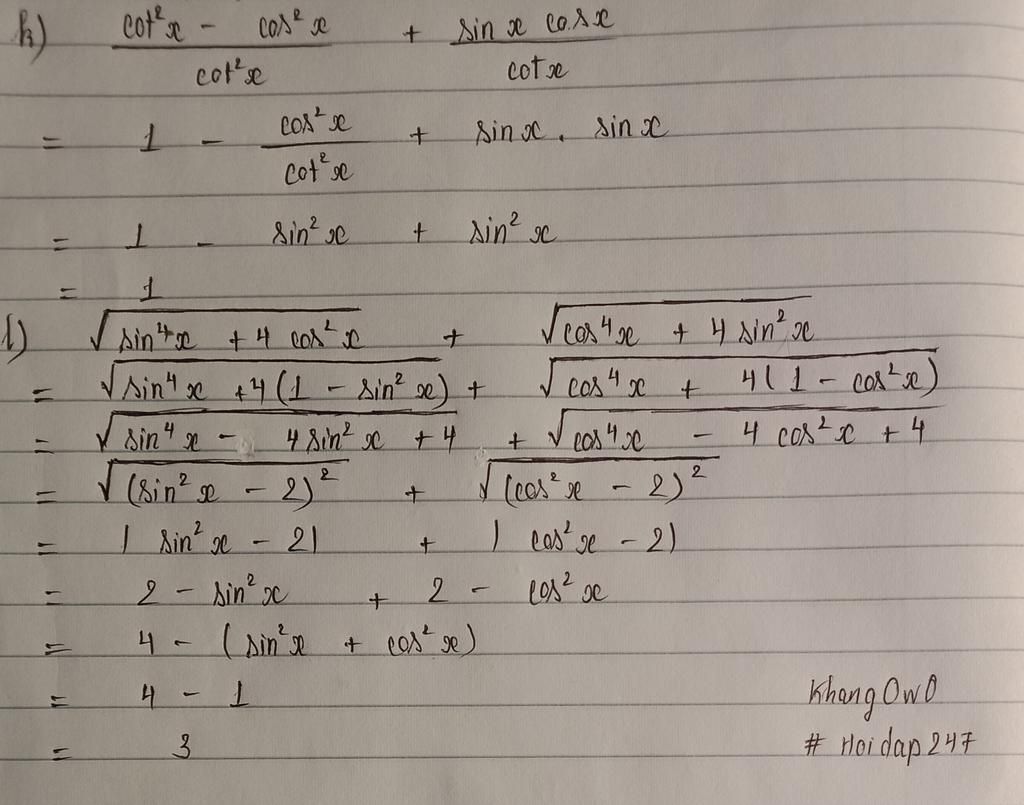 k) (cot²x - cos²x)/(cot²x) + (sin x cos x)/(cot x)
= 1 - (cos²x)/(cot²x) + sin x . sin x
= 1 - sin²x + sin²x
= 1
l) √(sin⁴x + 4 cos²x) + √(cos⁴x + 4 sin²x)
= √(sin⁴x + 4(1 - sin²x)) + √(cos⁴x + 4(1 - cos²x))
= √(sin⁴x - 4 sin²x + 4) + √(cos⁴x - 4 cos²x + 4)
= √((sin²x - 2)²) + √((cos²x - 2)²)
= |sin²x - 2| + |cos²x - 2|
= 2 - sin²x + 2 - cos²x
= 4 - (sin²x + cos²x)
= 4 - 1
= 3
Khang OwO
# Hoidap247